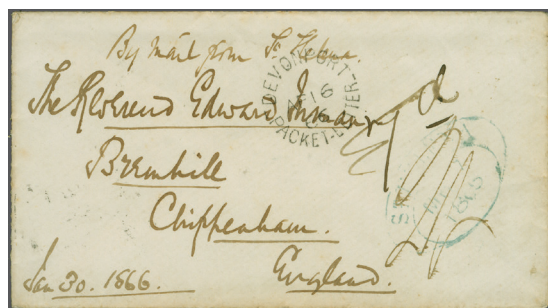 By Mail from St Helena.
DEVONPORT
16
PACKET-LETTER
The Reverend Edward
Bremhill
Chippenham.
England.
Jan 30. 1866.